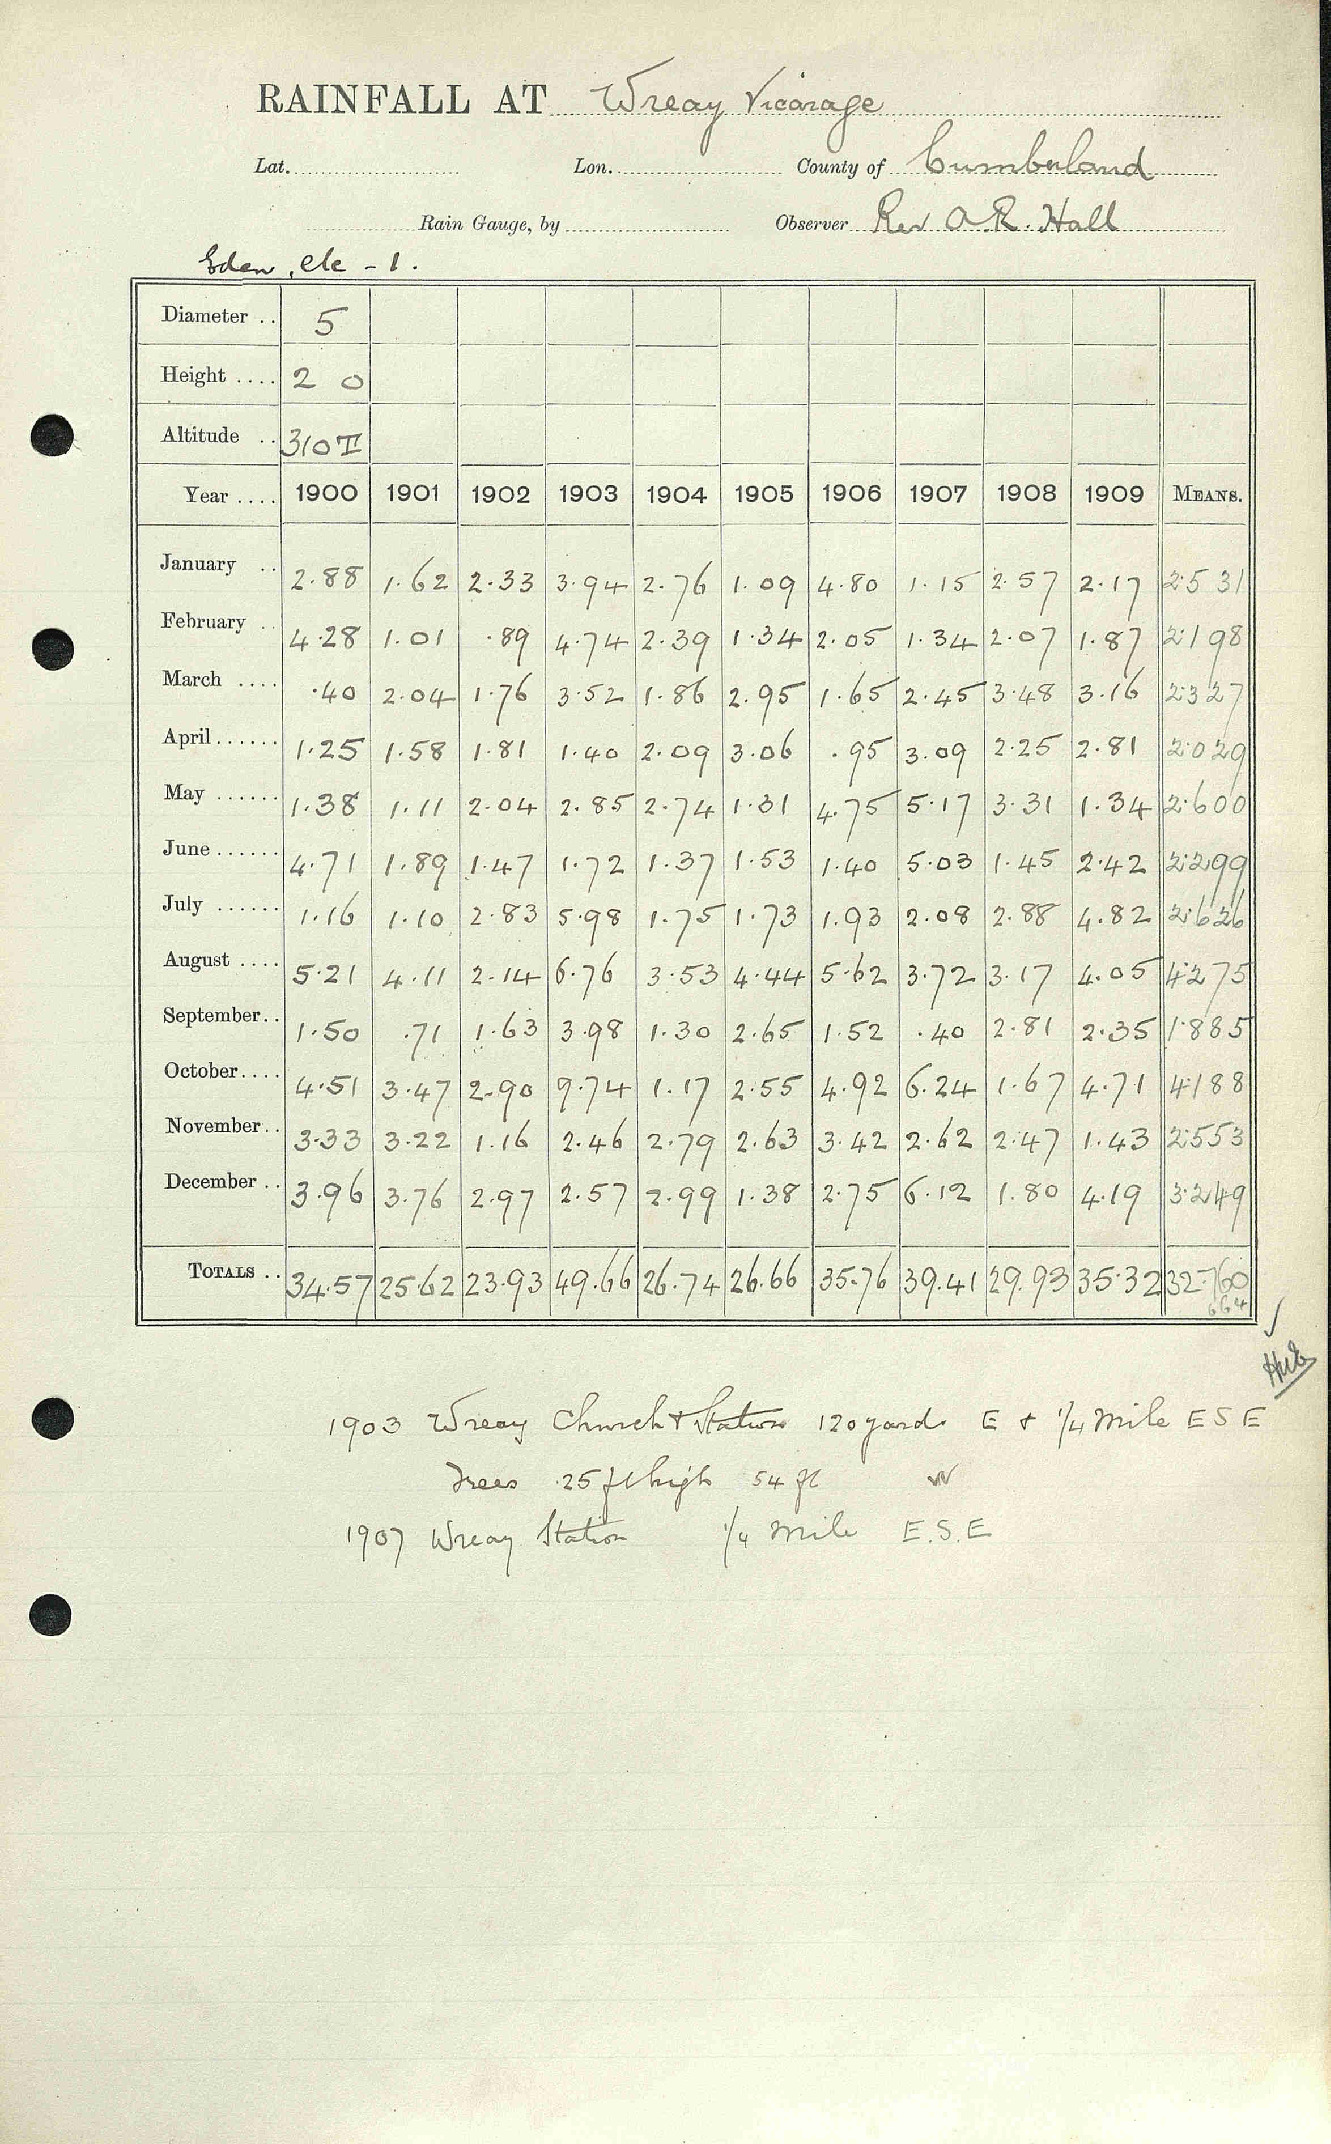 RAINFALL AT Wreay Vicarage
Lat. Lon. County of Cumberland
Rain Gauge, by Observer Rev A.R. Hall
Eden, etc - 1.
Diameter .. 5
Height .... 2 0
Altitude .. 310 T
Year .... 1900 1901 1902 1903 1904 1905 1906 1907 1908 1909 MEANS.
January .. 2.88 1.62 2.33 3.94 2.76 1.09 4.80 1.15 2.57 2.17 2.531
February .. 4.28 1.01 .89 4.74 2.39 1.34 2.05 1.34 2.07 1.87 2.198
March .... .40 2.04 1.76 3.52 1.86 2.95 1.65 2.45 3.48 3.16 2.327
April...... 1.25 1.58 1.81 1.40 2.09 3.06 .95 3.09 2.25 2.81 2.029
May ...... 1.38 1.11 2.04 2.85 2.74 1.31 4.75 5.17 3.31 1.34 2.600
June...... 4.71 1.89 1.47 1.72 1.37 1.53 1.40 5.03 1.45 2.42 2.299
July ...... 1.16 1.10 2.83 5.98 1.75 1.73 1.93 2.08 2.88 4.82 2.626
August .... 5.21 4.11 2.14 6.76 3.53 4.44 5.62 3.72 3.17 4.05 4.275
September.. 1.50 .71 1.63 3.98 1.30 2.65 1.52 .40 2.81 2.35 1.885
October.... 4.51 3.47 2.90 9.74 1.17 2.55 4.92 6.24 1.67 4.71 4.188
November.. 3.33 3.22 1.16 2.46 2.79 2.63 3.42 2.62 2.47 1.43 2.553
December .. 3.96 3.76 2.97 2.57 2.99 1.38 2.75 6.12 1.80 4.19 3.249
TOTALS .. 34.57 25.62 23.93 49.66 26.74 26.66 35.76 39.41 29.93 35.32 32.760
664
1903 Wreay Church & Station 120 yards E & 1/4 Mile E S E
Trees 25 ft high 54 ft W
1907 Wreay Station 1/4 Mile E.S.E